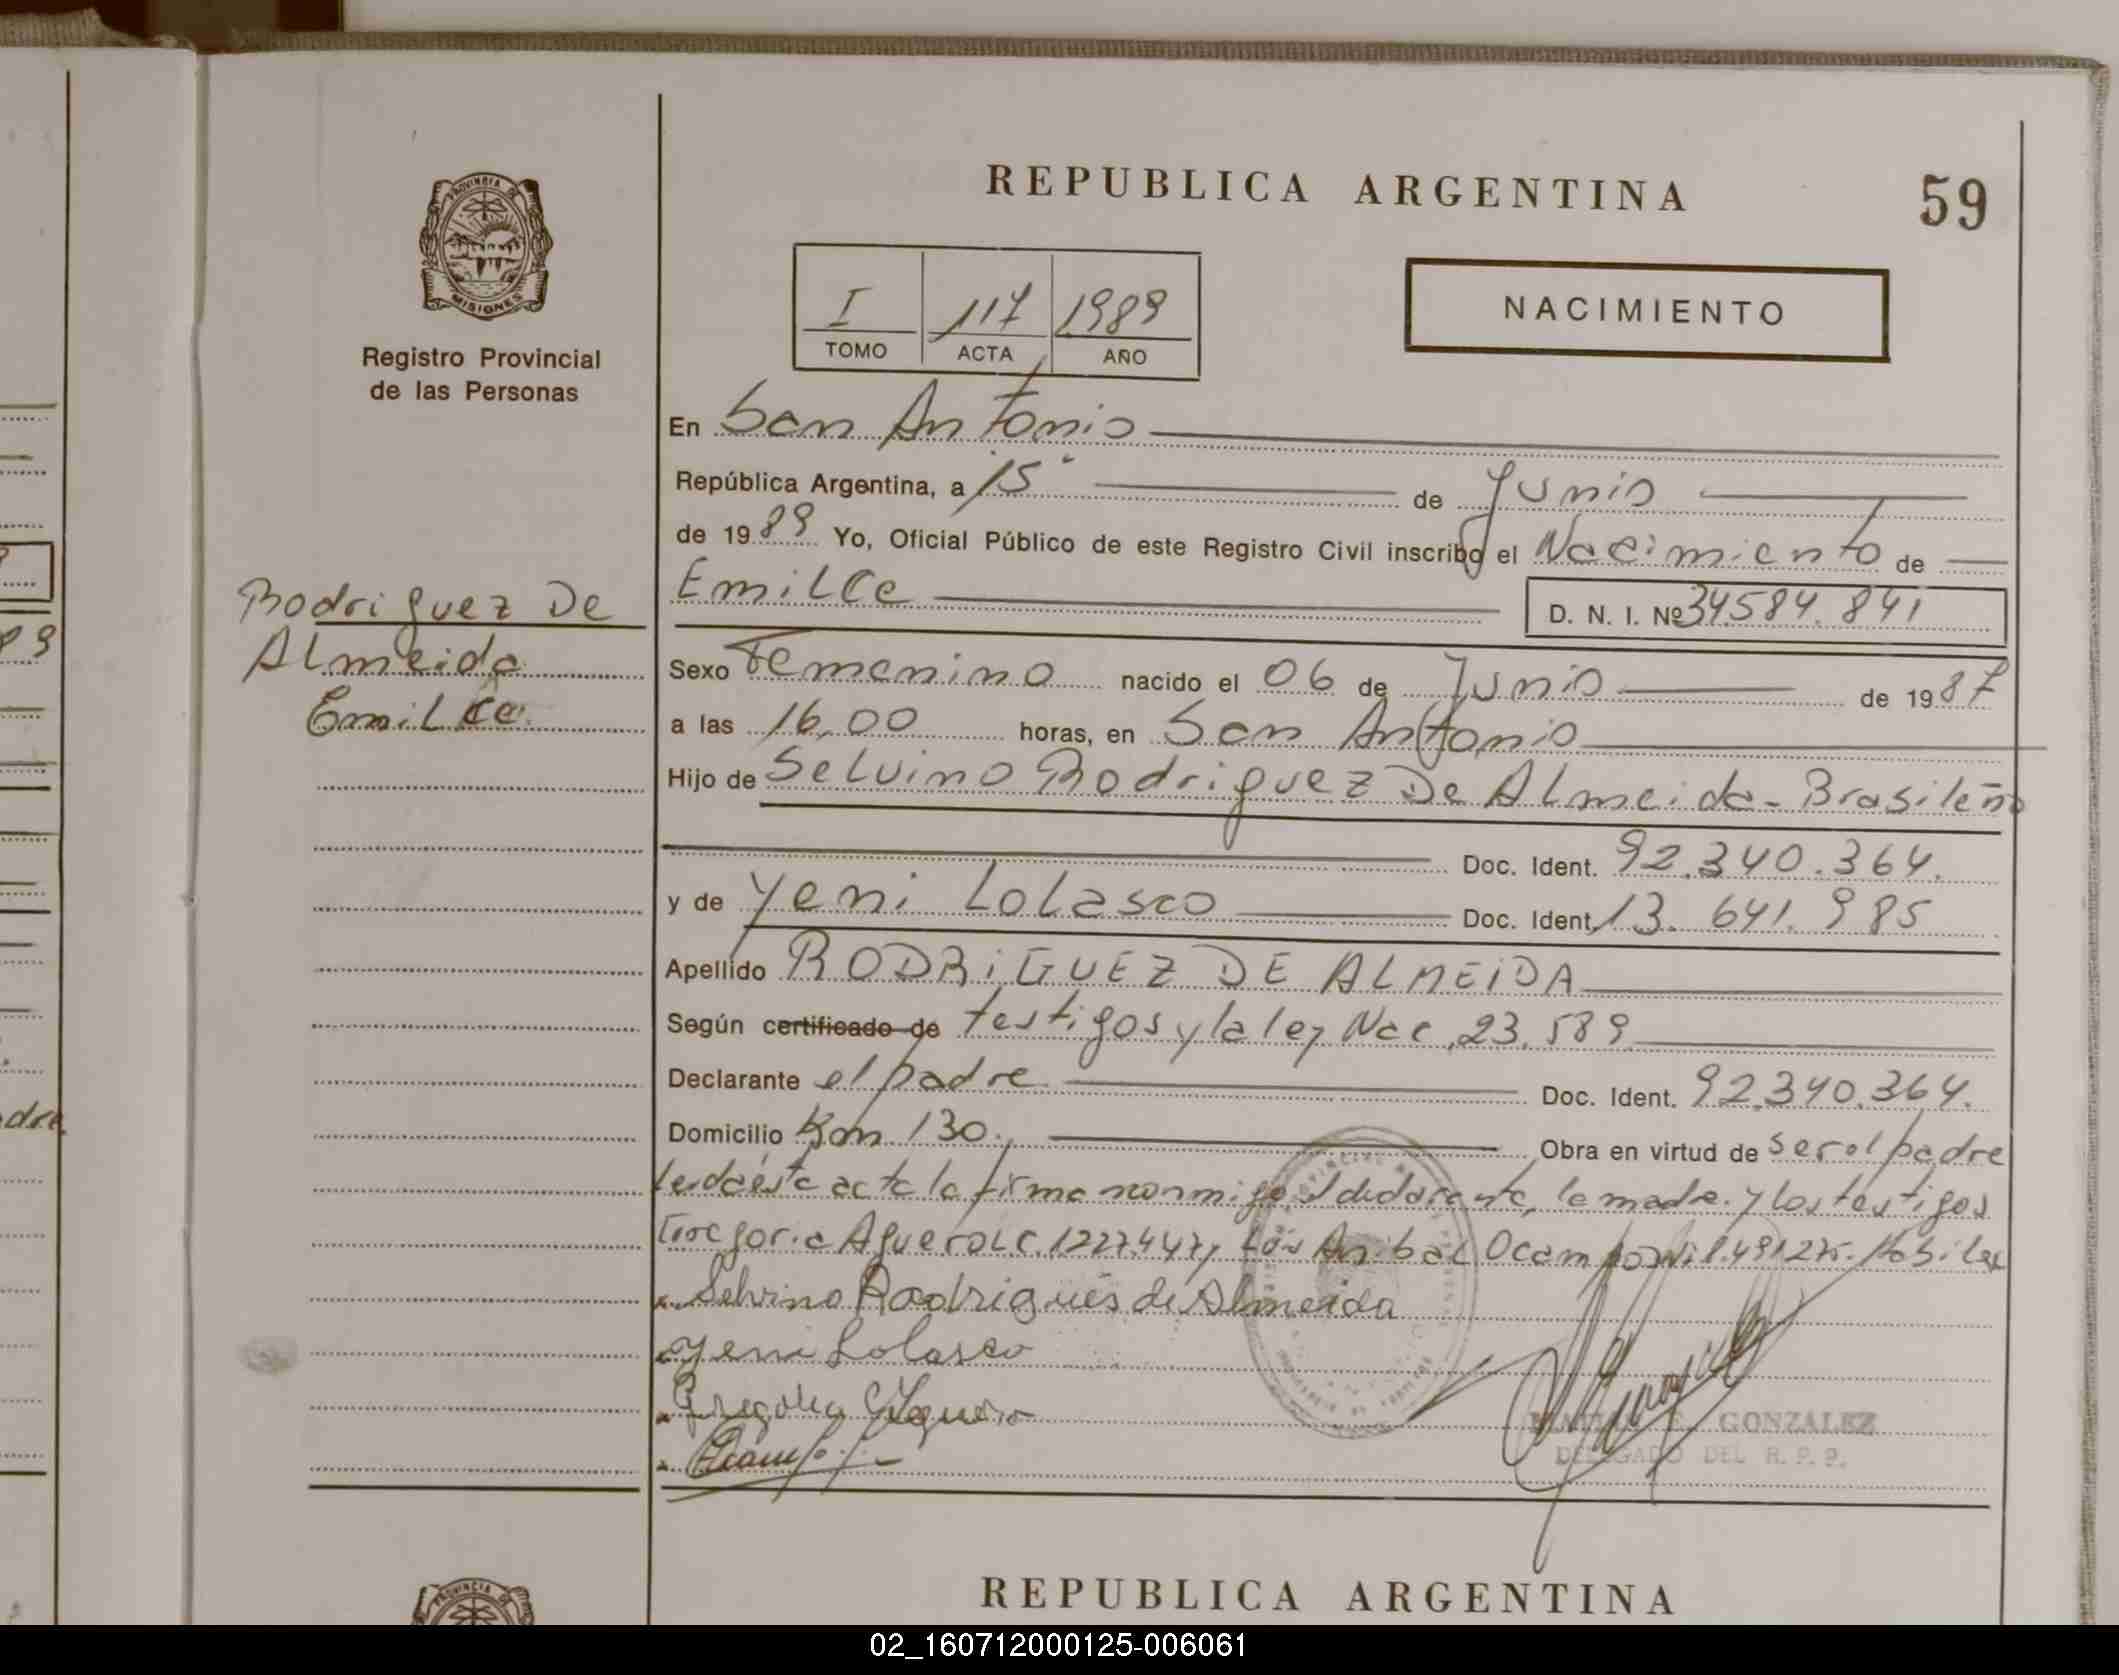 REPUBLICA ARGENTINA
59
PROVINCIA DE
MISIONES
Registro Provincial
de las Personas
I 117 1989
TOMO ACTA AÑO
NACIMIENTO
En San Antonio
República Argentina, a 15 de Junio
de 1989 Yo, Oficial Público de este Registro Civil inscribo el Nacimiento de
Emilce
D. N. I. Nº 34.584.841
Rodriguez De
Almeida
Emilce
Sexo Femenino nacido el 06 de Junio de 1987
a las 16,00 horas, en San Antonio
Hijo de Selvino Rodriguez De Almeida - Brasileño
Doc. Ident. 92.340.364.
y de Yeni Lolasco Doc. Ident. 13.641.985
Apellido RODRIGUEZ DE ALMEIDA
Según certificado de testigos y la ley Nac. 23.589
Declarante el padre Doc. Ident. 92.340.364.
Domicilio Km 130. Obra en virtud de ser el padre
Leida ésta acta la firma conmigo, el declarante, la madre y los testigos
Gregoria Aguero L.C. 1227447 y Anibal Ocampo 8.491.275. Habiles
Selvino Rodrigues de Almeida
Yeni Lolasco
Gregoria Aguero
Ocampo
E. GONZALEZ
DELEGADO DEL R. P. P.
REPUBLICA ARGENTINA
PROVINCIA
02_160712000125-006061